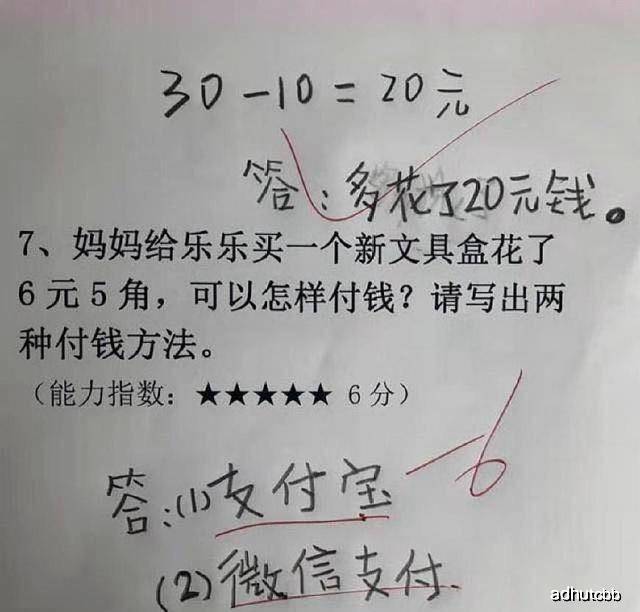 30-10=20元
答:多花了20元钱。
7、妈妈给乐乐买一个新文具盒花了
6元5角，可以怎样付钱？请写出两
种付钱方法。
（能力指数：★★★★★ 6分）
-6
答:(1)支付宝
(2)微信支付.
adhutcbb